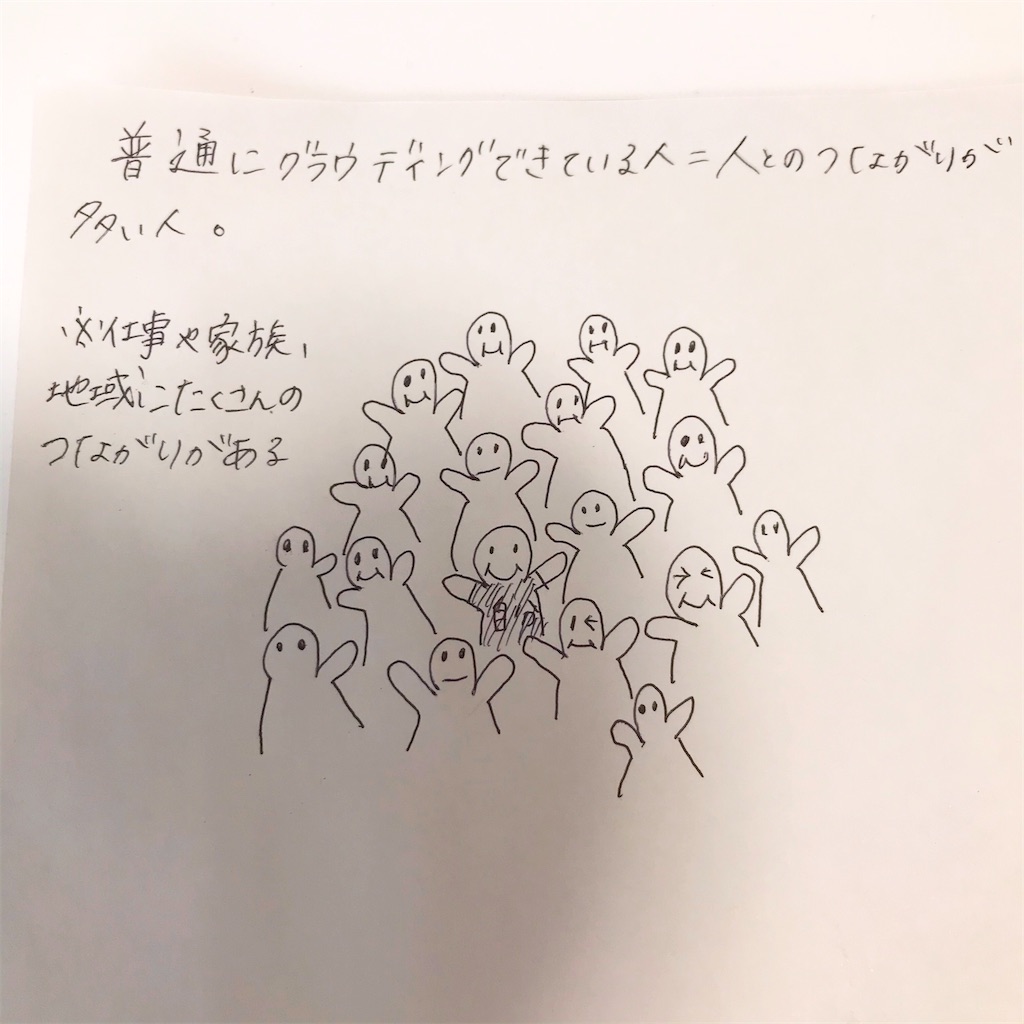 普通にグラウディングできている人=人とのつながりが
多い人。
※仕事や家族、
地域にたくさんの
つながりがある
自分